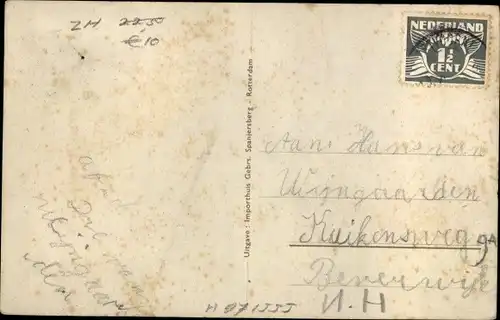 ZH 22.50
€ 10
NEDERLAND
1½
CENT
Uitgave: Importhuis Gebrs. Spanjersberg - Rotterdam
Aan Hans van
Wijngaarden
Kuikensweg 9A
Beverwijk
N.H
H 971555